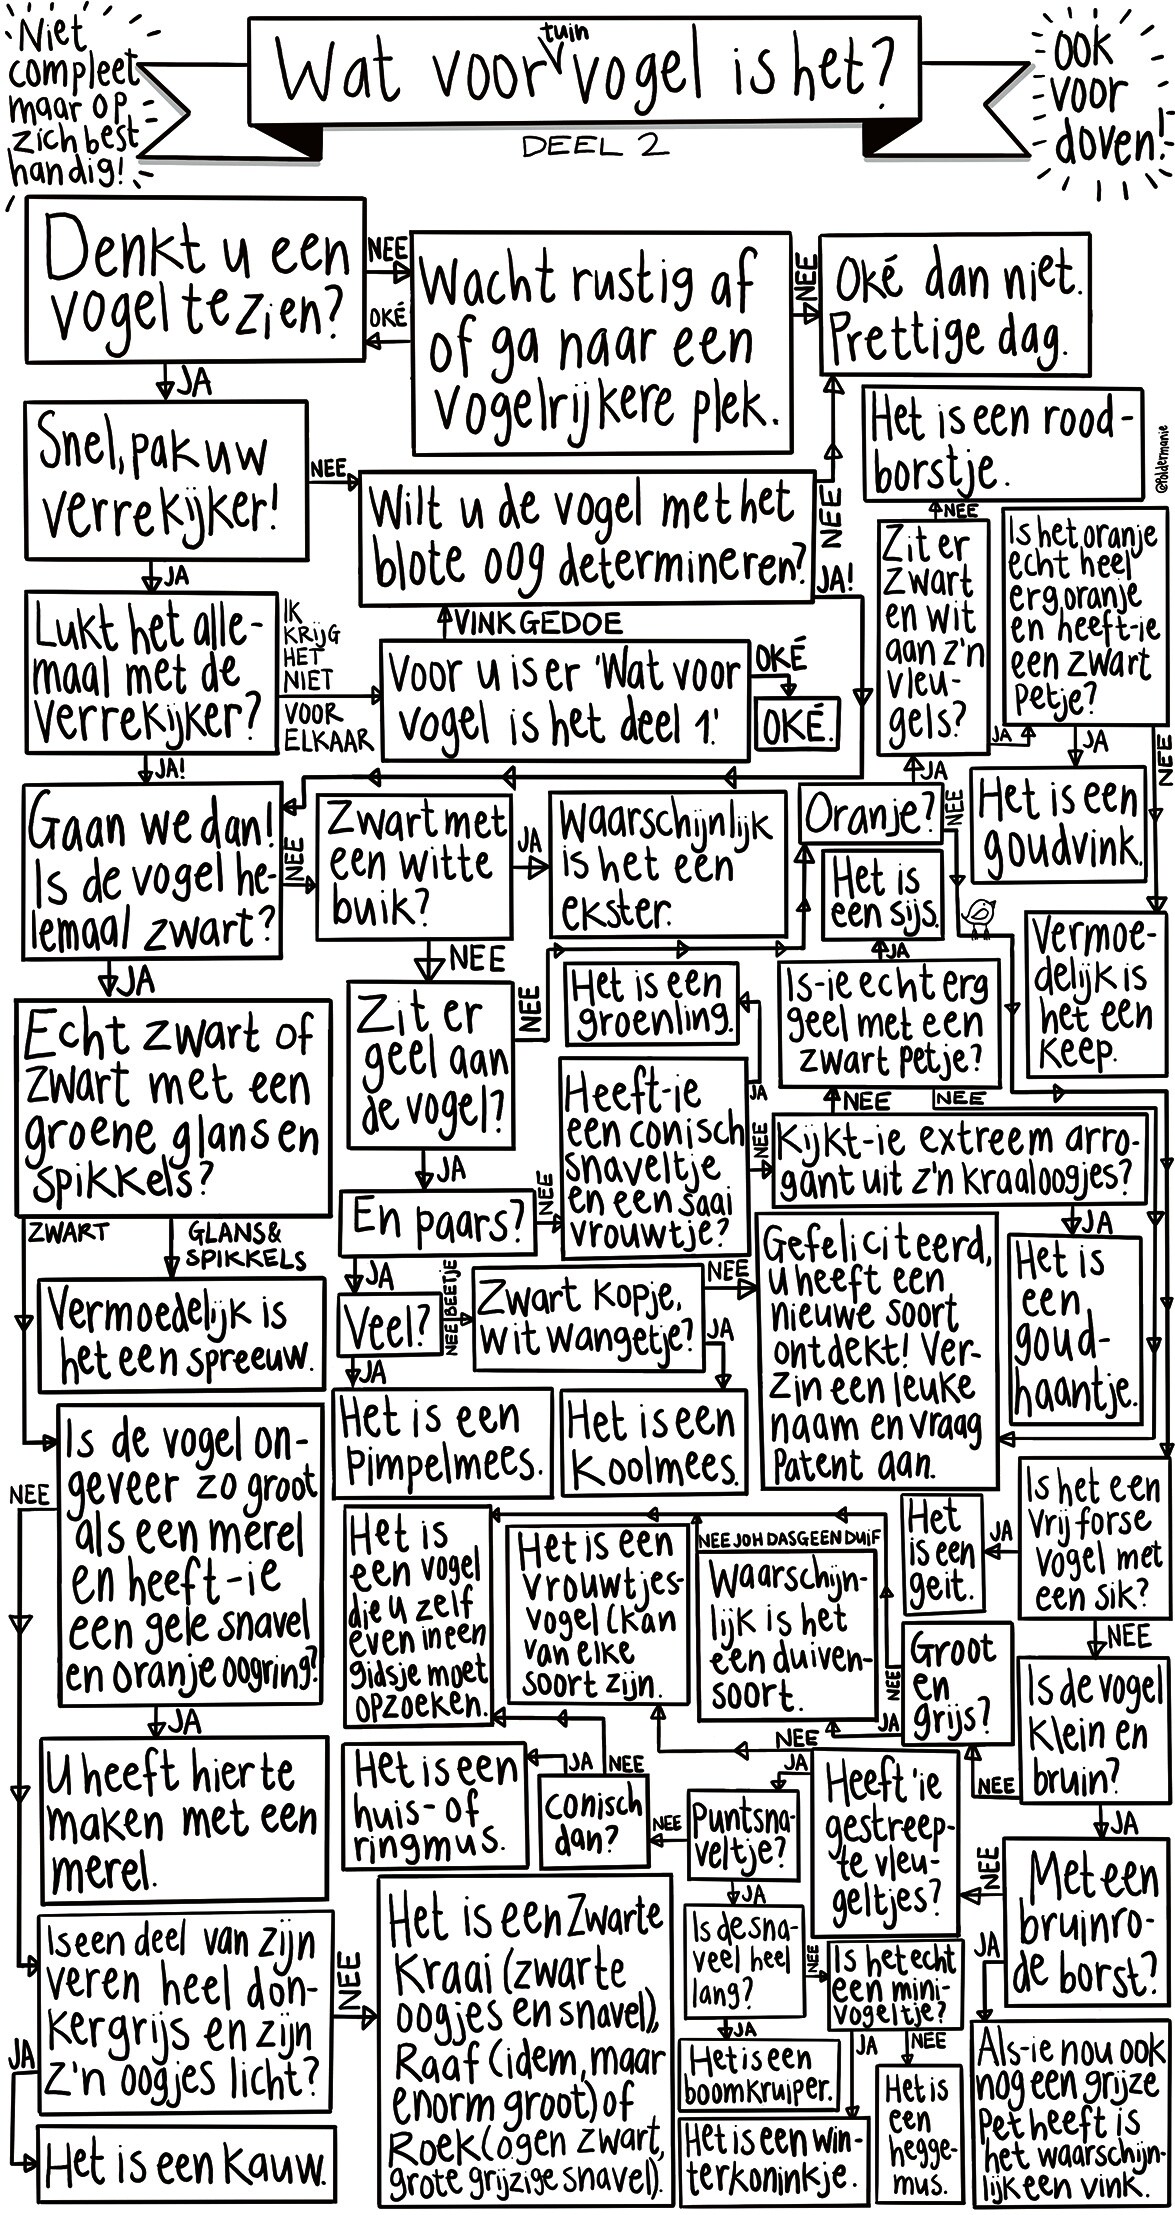 Niet
compleet
maar op
zich best
handig!
Wat voor tuin vogel is het?
DEEL 2
OOK
VOOR
doven!
Denkt u een
vogel te zien?
NEE
OKÉ
JA
Wacht rustig af
of ga naar een
vogelrijkere plek.
NEE
Oké dan niet.
Prettige dag.
Snel, pak uw
verrekijker!
NEE
JA
Wilt u de vogel met het
blote oog determineren?
NEE
JA!
Het is een rood-
borstje.
@Poldermanie
NEE
Zit er
zwart
en wit
aan z'n
vleu-
gels?
JA
JA
Is het oranje
echt heel
erg oranje
en heeft-ie
een zwart
petje?
JA
NEE
Lukt het alle-
maal met de
verrekijker?
IK
KRIJG
HET
NIET
VOOR
ELKAAR
JA!
VINK GEDOE
Voor u is er 'Wat voor
vogel is het deel 1'.
OKÉ
OKÉ.
Gaan we dan!
Is de vogel he-
lemaal zwart?
NEE
JA
Zwart met
een witte
buik?
JA
NEE
Waarschijnlijk
is het een
ekster.
Oranje?
NEE
Het is een
goudvink.
Het is
een sijs.
JA
Vermoe-
delijk is
het een
keep.
Echt zwart of
zwart met een
groene glans en
spikkels?
ZWART
GLANS &
SPIKKELS
Zit er
geel aan
de vogel?
NEE
JA
Het is een
groenling.
JA
Is-ie echt erg
geel met een
zwart petje?
NEE
NEE
Heeft-ie
een conisch
snaveltje
en een saai
vrouwtje?
NEE
Kijkt-ie extreem arro-
gant uit z'n kraaloogjes?
JA
En paars?
NEE
JA
Veel?
NEE BEETJE
JA
Zwart kopje,
wit wangetje?
NEE
JA
Gefeliciteerd,
u heeft een
nieuwe soort
ontdekt! Ver-
zin een leuke
naam en vraag
Patent aan.
Het is
een
goud-
haantje.
Vermoedelijk is
het een spreeuw.
Het is een
Pimpelmees.
Het is een
Koolmees.
Is de vogel on-
geveer zo groot
als een merel
en heeft-ie
een gele snavel
en oranje oogring?
NEE
JA
Het is
een vogel
die u zelf
even in een
gidsje moet
opzoeken.
Het is een
vrouwtjes-
vogel (kan
van elke
soort zijn.
NEE JOH DAS GEEN DUIF
Waarschijn-
lijk is het
een duiven-
soort.
Het
is een
geit.
JA
Is het een
vrij forse
vogel met
een sik?
NEE
Groot
en
grijs?
NEE
JA
Is de vogel
klein en
bruin?
NEE
JA
U heeft hier te
maken met een
merel.
Het is een
huis- of
ringmus.
JA
NEE
conisch
dan?
NEE
Puntsna-
veltje?
JA
NEE
JA
Heeft 'ie
gestreep-
te vleu-
geltjes?
NEE
Met een
bruinro-
de borst?
JA
Is een deel van zijn
veren heel don-
kergrijs en zijn
z'n oogjes licht?
NEE
JA
Het is een Kauw.
Het is een Zwarte
Kraai (zwarte
oogjes en snavel),
Raaf (idem, maar
enorm groot) of
Roek (ogen zwart,
grote grijzige snavel).
Is de sna-
vel heel
lang?
NEE
JA
Het is een
boomkruiper.
Is het echt
een mini-
vogeltje?
JA
NEE
Het is een win-
terkoninkje.
Het is
een
hegge-
mus.
Als-ie nou ook
nog een grijze
Pet heeft is
het waarschijn-
lijk een vink.